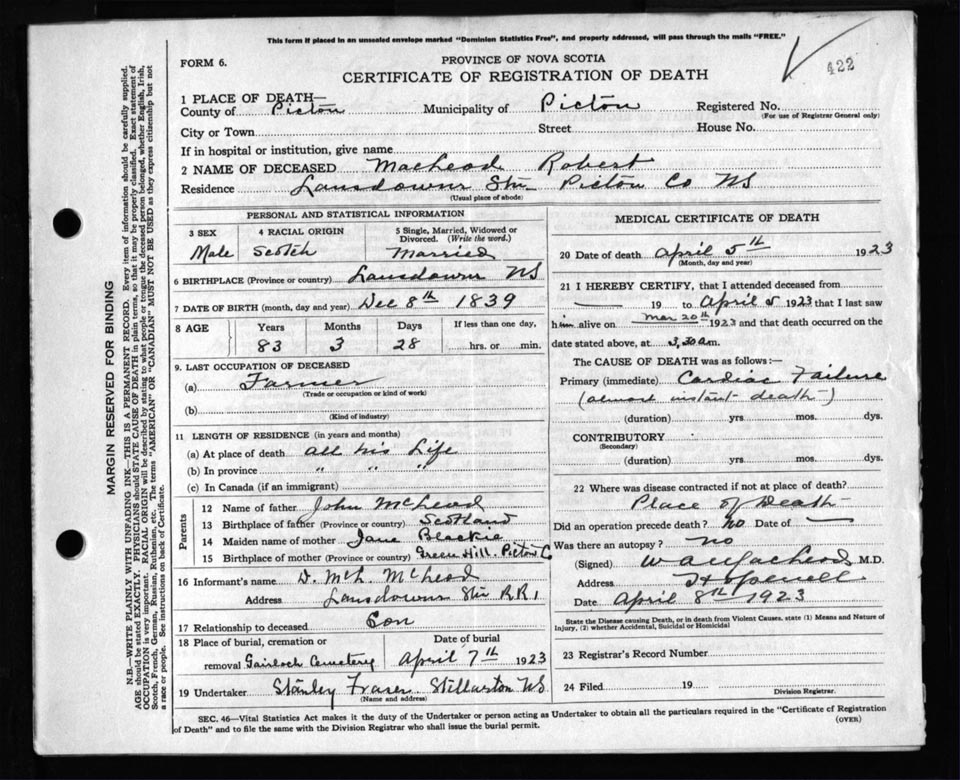 This form if placed in an unsealed envelope marked "Dominion Statistics Free", and properly addressed, will pass through the mails "FREE."
FORM 6.
PROVINCE OF NOVA SCOTIA
422
CERTIFICATE OF REGISTRATION OF DEATH
1 PLACE OF DEATH—
County of Pictou Municipality of Pictou Registered No.
(For use of Registrar General only)
City or Town Street House No.
If in hospital or institution, give name
2 NAME OF DECEASED MacLeod Robert
Residence Lansdowne Stn Pictou Co NS
(Usual place of abode)
PERSONAL AND STATISTICAL INFORMATION
3 SEX 4 RACIAL ORIGIN 5 Single, Married, Widowed or Divorced. (Write the word.)
Male Scotch Married
6 BIRTHPLACE (Province or country) Lansdowne NS
7 DATE OF BIRTH (month, day and year) Dec 8th 1839
8 AGE Years Months Days If less than one day,
83 3 28 hrs. or min.
9. LAST OCCUPATION OF DECEASED
(a) Farmer
(Trade or occupation or kind of work)
(b)
(Kind of industry)
11 LENGTH OF RESIDENCE (in years and months)
(a) At place of death all his Life
(b) In province " " "
(c) In Canada (if an immigrant)
Parents
12 Name of father John McLeod
13 Birthplace of father (Province or country) Scotland
14 Maiden name of mother Jane Blackie
15 Birthplace of mother (Province or country) Green Hill Pictou Co
16 Informant's name D. McL. McLeod
Address Lansdowne Stn RR1
17 Relationship to deceased Son
18 Place of burial, cremation or Date of burial
removal Gairloch Cemetery April 7th 1923
19 Undertaker Stanley Fraser Stellarton NS
(Name and address)
MEDICAL CERTIFICATE OF DEATH
20 Date of death April 5th 1923
(Month, day and year)
21 I HEREBY CERTIFY, that I attended deceased from
19 to April 5 1923 that I last saw
him alive on Mar 20th 1923 and that death occurred on the
date stated above, at 3,30 am.
The CAUSE OF DEATH was as follows:—
Primary (immediate) Cardiac Failure
(almost instant death)
(duration) yrs. mos. dys.
CONTRIBUTORY
(Secondary)
(duration) yrs. mos. dys.
22 Where was disease contracted if not at place of death?
Place of Death
Did an operation precede death? no Date of
Was there an autopsy? no
(Signed) M.D.
Address Hopewell
Date April 8th 1923
State the Disease causing Death, or in death from Violent Causes, state (1) Means and Nature of
Injury, (2) whether Accidental, Suicidal or Homicidal
23 Registrar's Record Number
24 Filed 19
Division Registrar.
SEC. 46—Vital Statistics Act makes it the duty of the Undertaker or person acting as Undertaker to obtain all the particulars required in the "Certificate of Registration
of Death" and to file the same with the Division Registrar who shall issue the burial permit.
(OVER)
MARGIN RESERVED FOR BINDING
N.B.—WRITE PLAINLY WITH UNFADING INK—THIS IS A PERMANENT RECORD. Every item of information should be carefully supplied.
AGE should be stated EXACTLY. PHYSICIANS should STATE CAUSE OF DEATH in plain terms, so that it may be properly classified. Exact statement of
OCCUPATION is very important. RACIAL ORIGIN will be described by stating to what people or tongue the deceased person belonged, whether English, Irish,
Scotch, French, German, Russian, Ruthenian, etc. The terms "AMERICAN" OR "CANADIAN" MUST NOT BE USED as they express citizenship but not
a race or people. See instructions on back of Certificate.